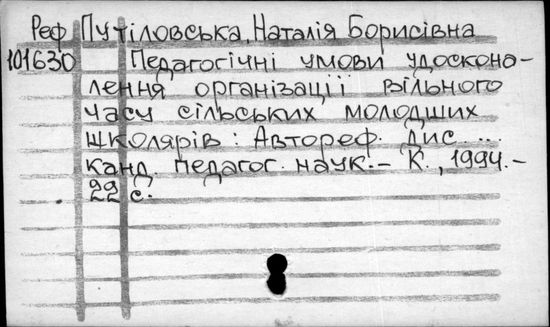 Реф Путіловська, Наталія Борисівна
101630 Педагогічні умови удоскона-
лення організації вільного
часу сільських молодших
школярів : Автореф. дис. ...
канд. педагог. наук. – К., 1994. –
22 с.